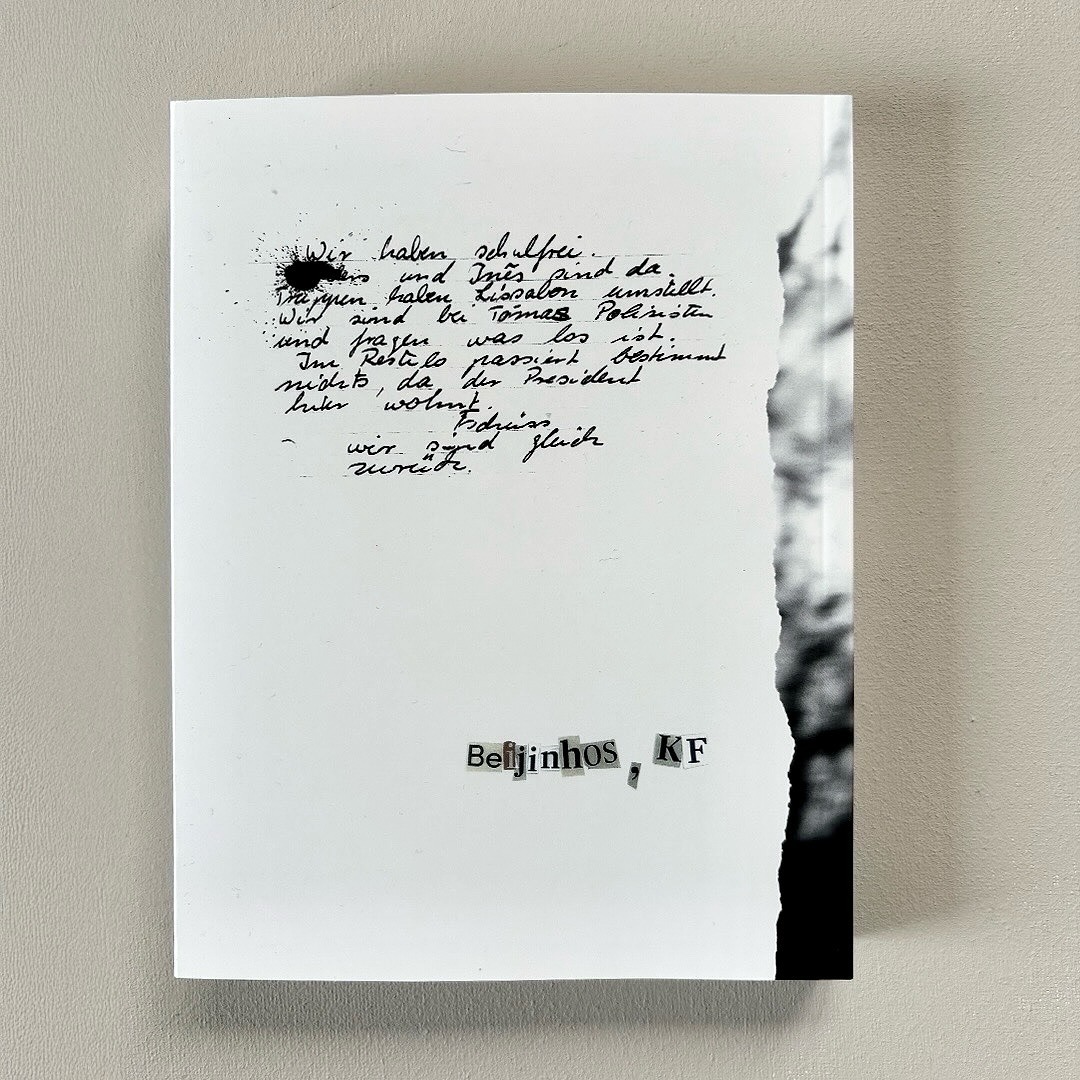 Wir haben schulfrei.
und Inês sind da.
Truppen haben Lissabon umstellt.
Wir sind bei Tómas Polizisten
und fragen was los ist.
Im Restelo passiert bestimmt
nichts, da der President
hier wohnt.
Tschüss
wir sind gleich
zurück.
Beijinhos, KF